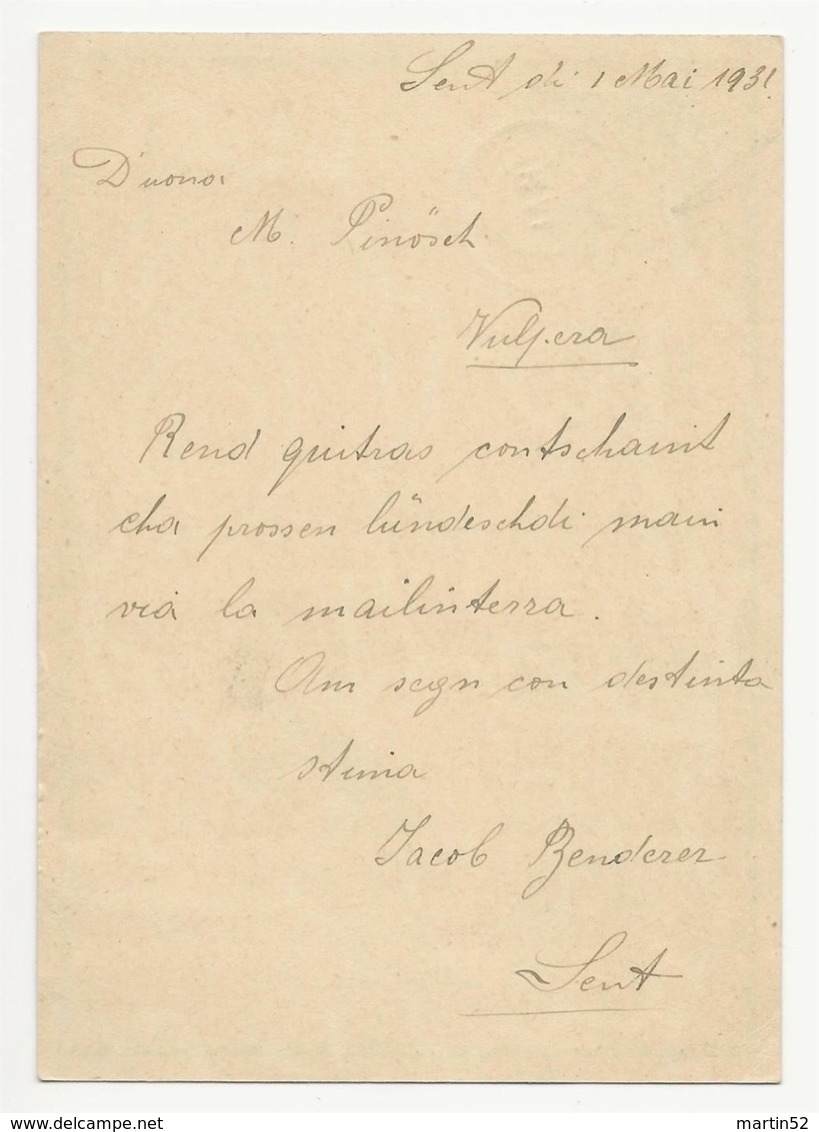 Sent di 1 Mai 1931
D'uona
M. Pinösch
Vulpera
Rend quitras contschaint
cha prossen lündeschdi main
via la mailinterra.
Am segn con destinta
stima
Jacob Benderer
Sent
delcampe.net
martin52